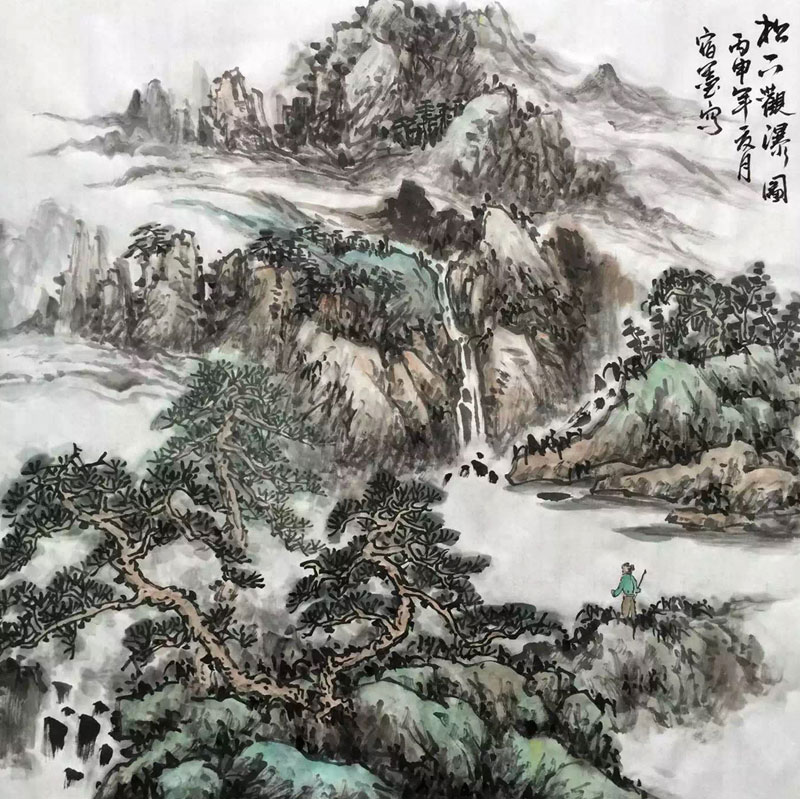 松下觀瀑圖
丙申年夏月
宿墨寫